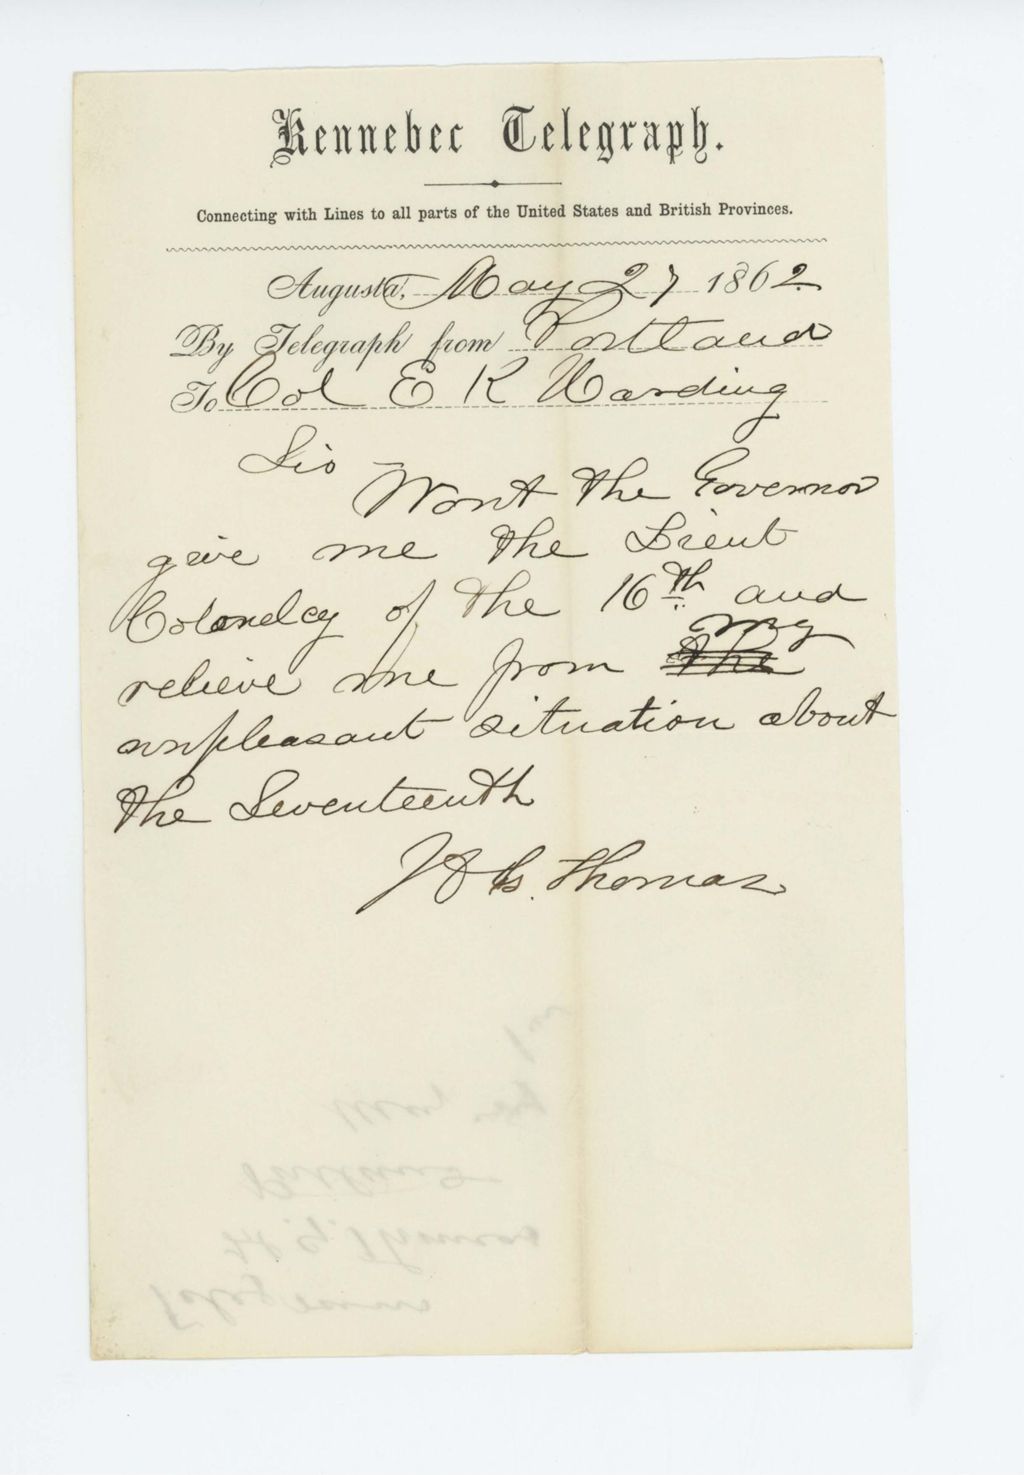 Kennebec Telegraph.
Connecting with Lines to all parts of the United States and British Provinces.
Augusta, May 27 1862
By Telegraph from Portland
To Col E K Harding
Sir
Wont the Governor
give me the Lieut
Colonelcy of the 16th and
my
relieve me from the
unpleasant situation about
the Seventeenth
H G. Thomas
Portland
H. G. Thomas
Telegram